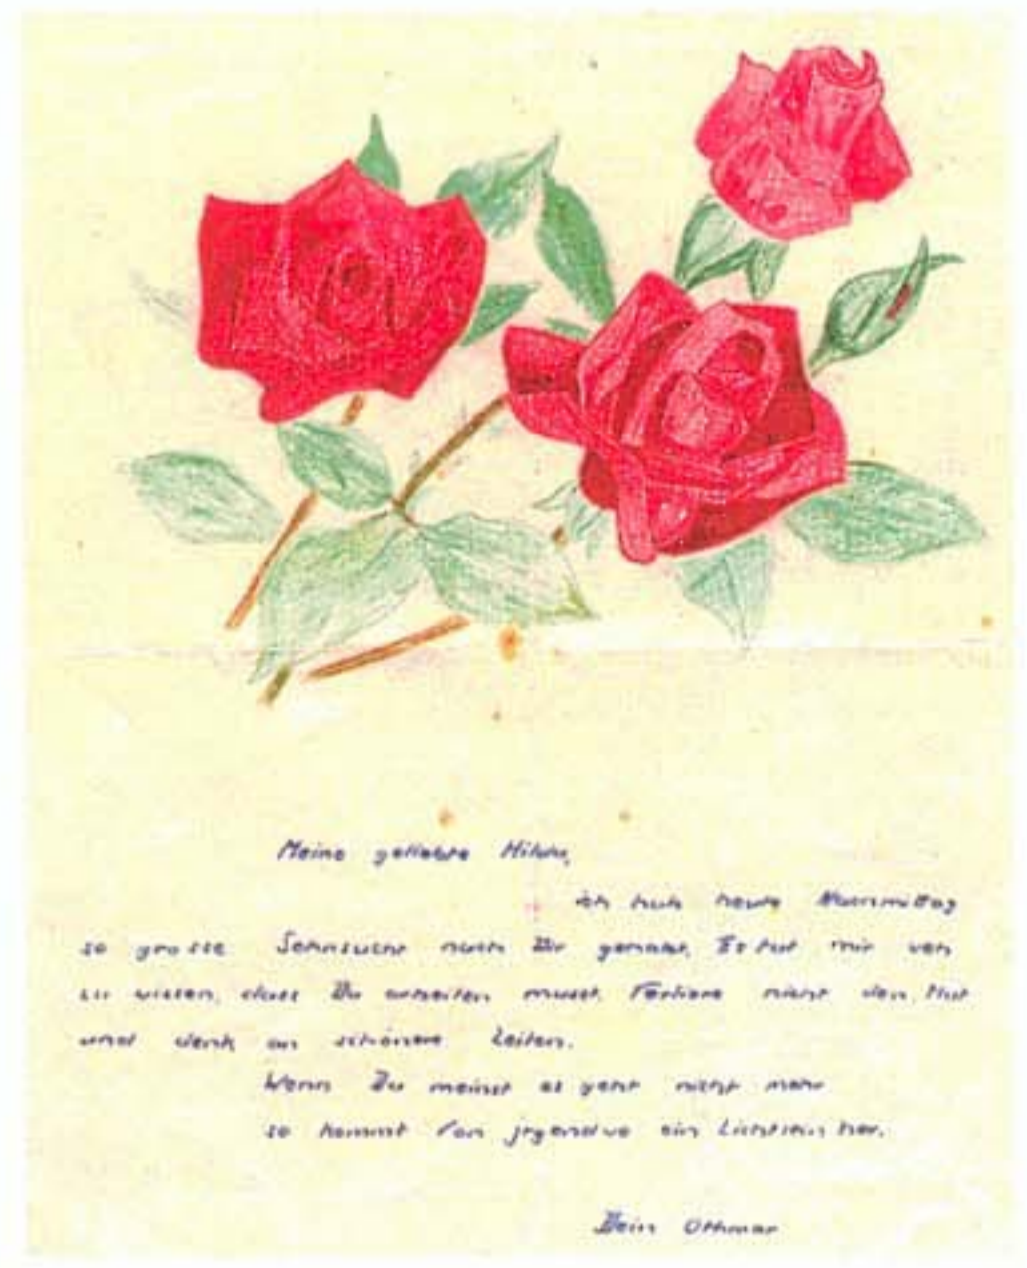 Meine geliebte Hilda,
ich hab heute Nachmittag
so grosse Sehnsucht nach Dir gehabt. Es tut mir weh
zu wissen, dass Du arbeiten musst. Verliere nicht den Mut
und denk an schönere Zeiten.
Wenn Du meinst es geht nicht mehr
so kommt von jrgendwo ein Lichtlein her.
Dein Othmar